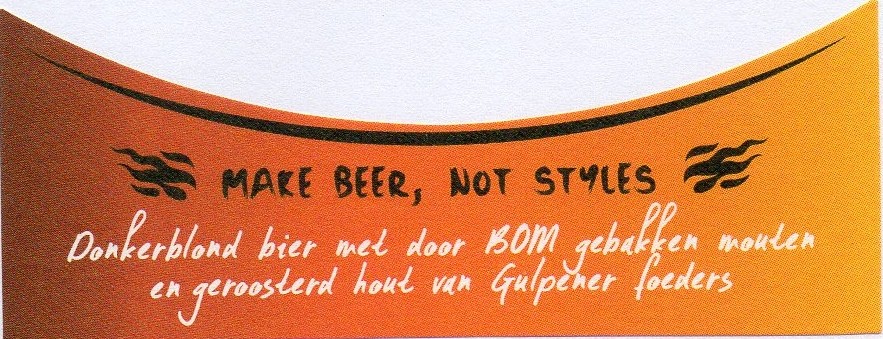 MAKE BEER, NOT STYLES
Donkerblond bier met door BOM gebakken mouten
en geroosterd hout van Gulpener foeders